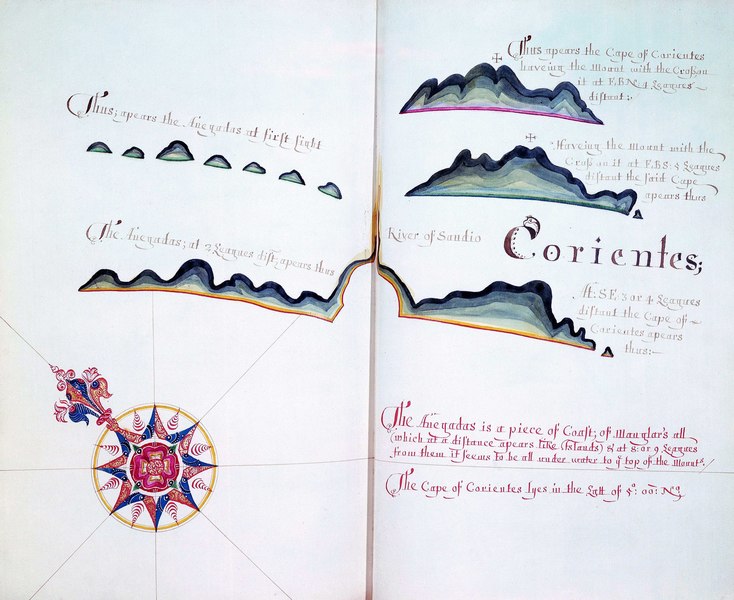 Thus; apears the Anegadas at first sight
The Anegadas; at 2 Leagues dist; apears thus
Thus apears the Cape of Corientes
haveing the Mount with the Cross on
it at E.B.N. 4 Leagues
distant:
Haveing the Mount with the
Cross on it at E.B.S: 4 Leagues
distant the said Cape
apears thus
River of Sandio
Corientes;
At S.E. 3 or 4 Leagues
distant the Cape of
Corientes apears
thus:
The Anegadas is a piece of Coast; of Manglar's all
(which at a distance apears like Islands) & at 8: or 9 Leagues
from them it seems to be all under water to ye top of the Mounts.
The Cape of Corientes lyes in the Latt of 5°: 00: No